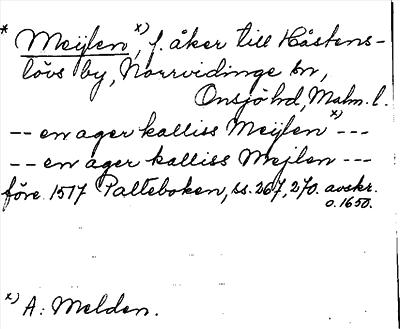 * Meijlen x), f. åker till Håstens-
lövs by, Norrvidinge sn,
Onsjö hd, Malm. l.
-- en ager kalliss Meijlen x) ---
-- en ager kalliss Mejlen ---
före 1517 Palteboken, ss. 267, 270. avskr.
o. 1650.
x) A: Melden.